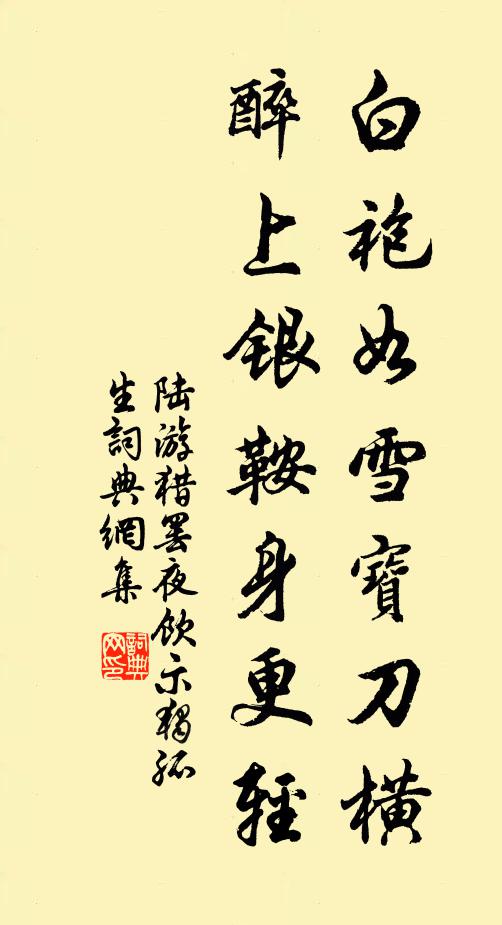 白袍如雪寶刀橫
醉上銀鞍身更輕
陆游猎罢夜飲示獨孤
生詞典網集
詞典網印